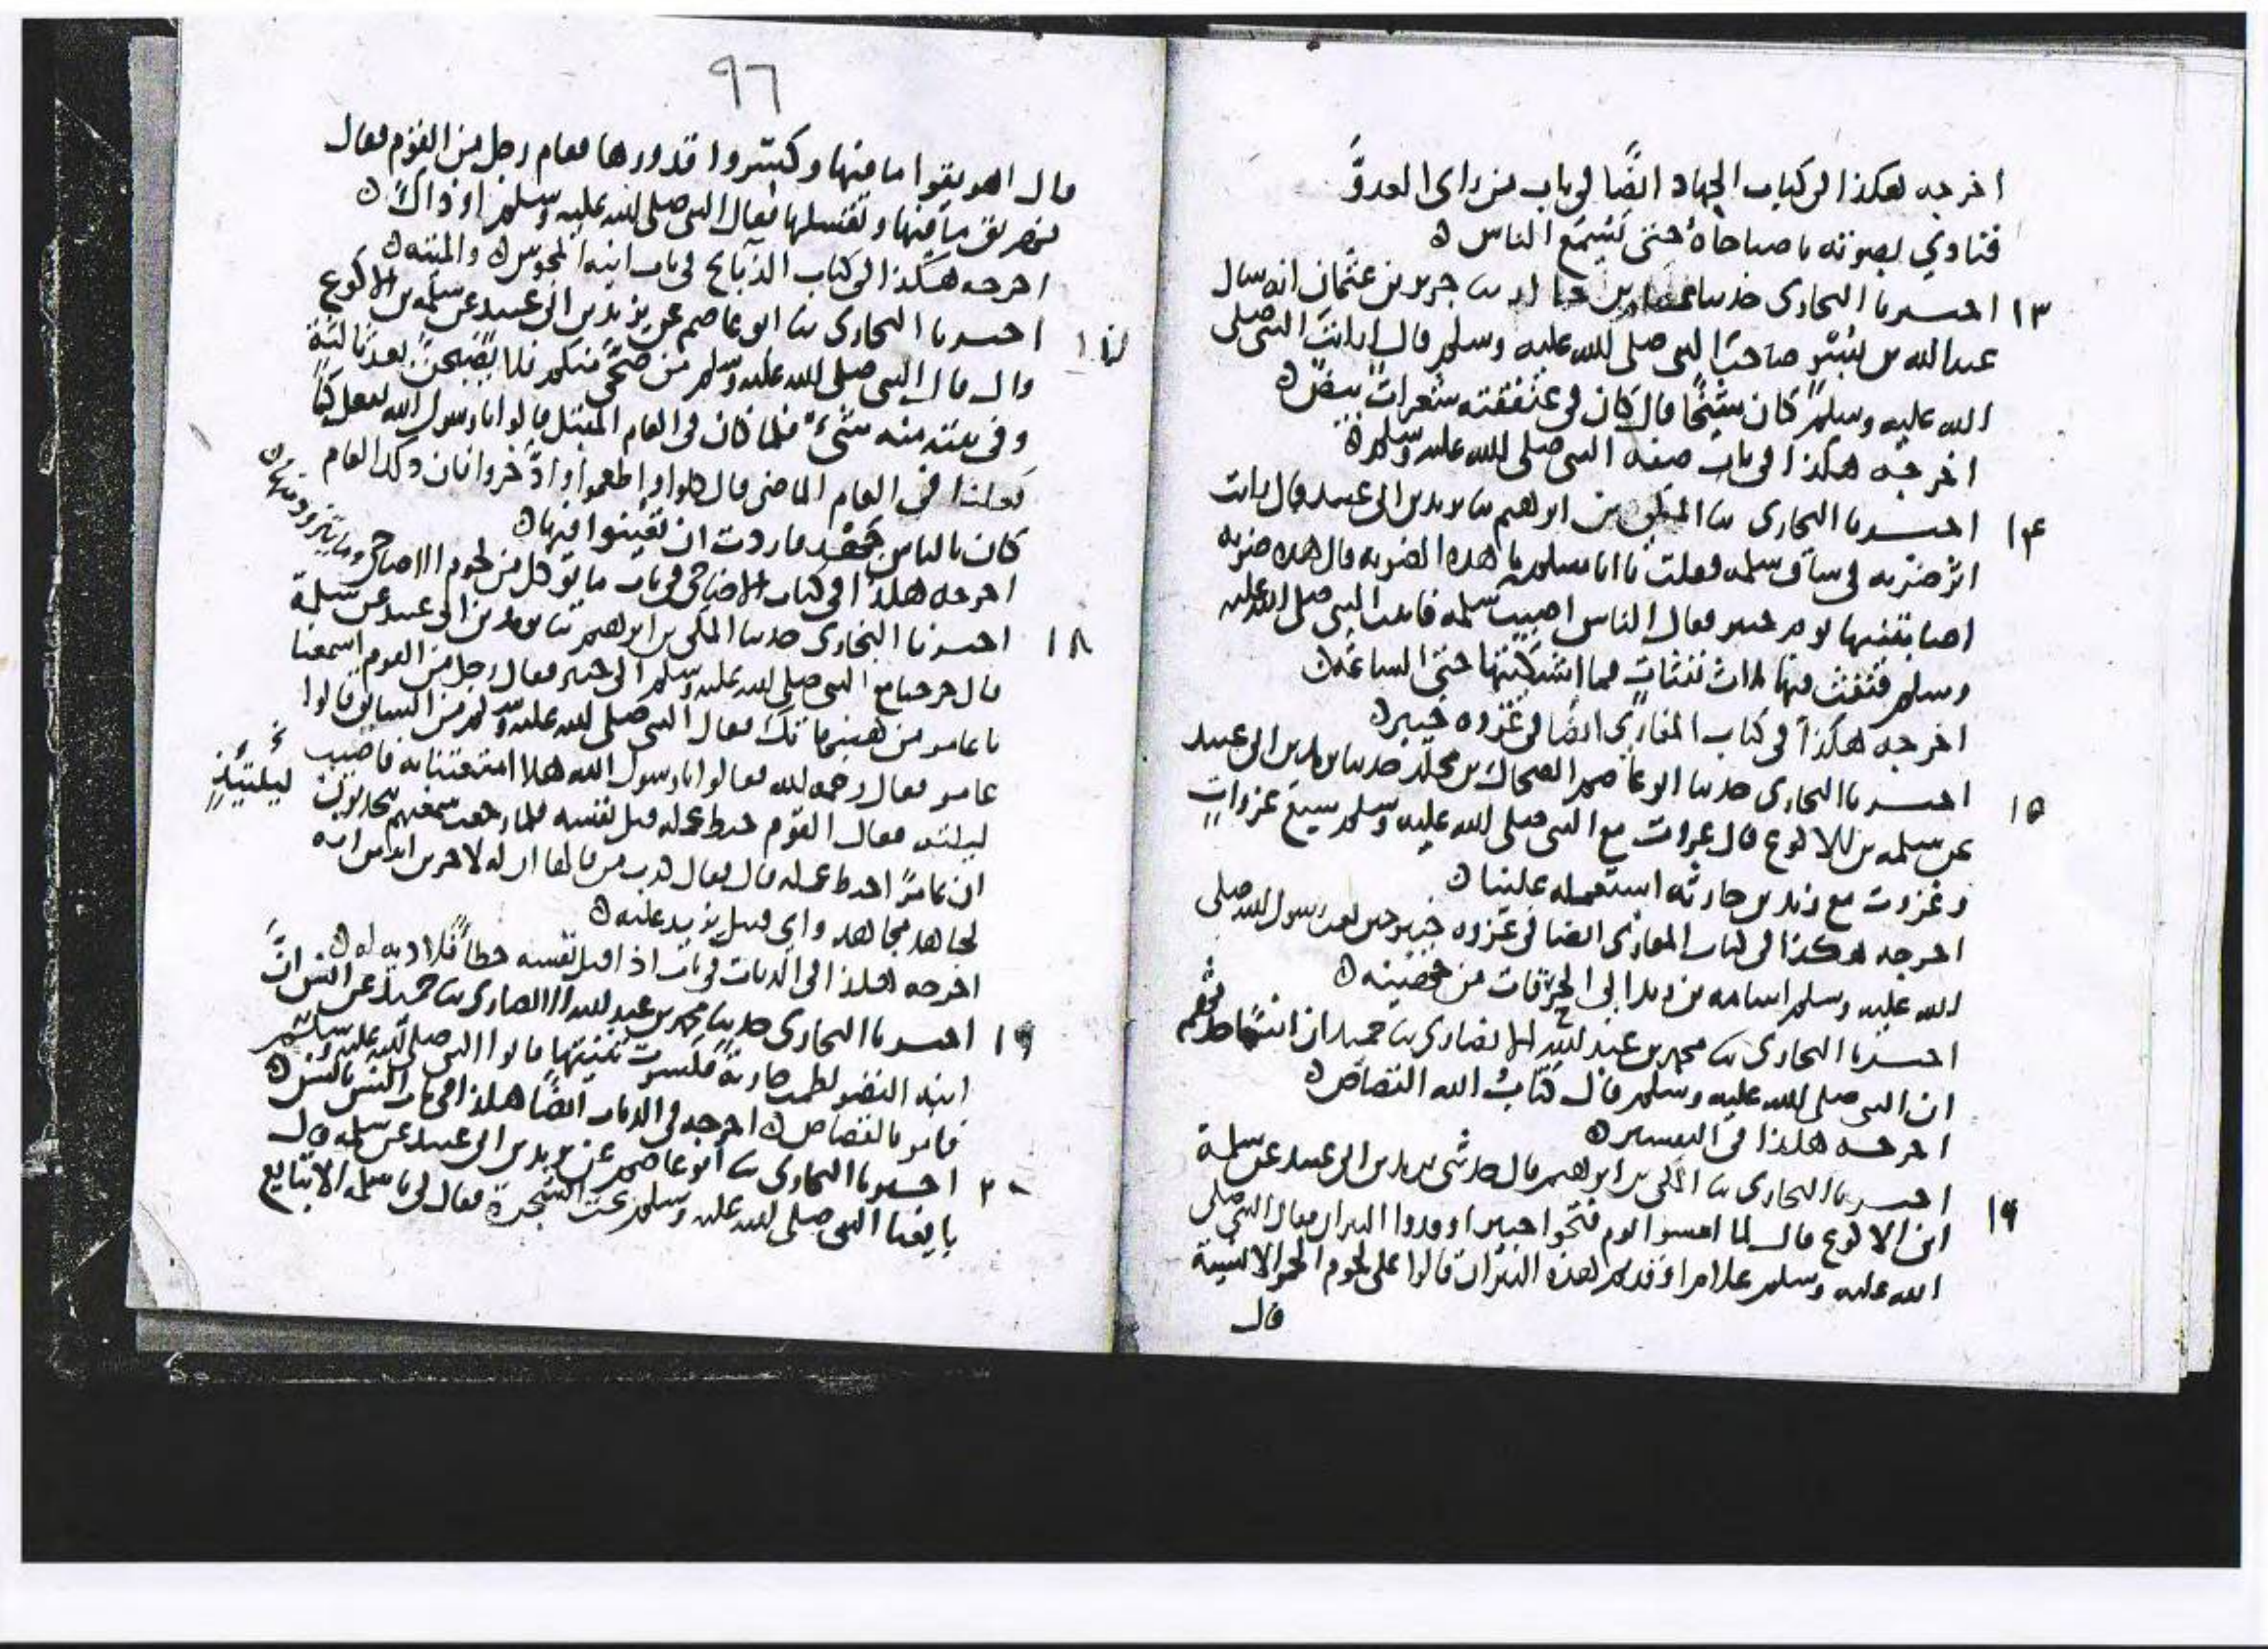 اخرجه هكذا في كتاب الجهاد ايضًا في باب من راى العدوَّ
فنادي بصوته يا صباحاهُ حتى يُسْمِعَ الناس ه
١٣ اخبرنا البخاري حدثنا عصام بن خالد ثنا جرير بن عثمان انه سال
عبد الله بن بسْر صاحبَ النبي صلى الله عليه وسلم قال ارايتَ النبي صلى
الله عليه وسلم كان شَيْخًا قال كان في عَنْفَقَته شعراتٌ بيضٌ ه
اخرجه هكذا في باب صفة النبي صلى الله عليه وسلم ه
١٤ اخبرنا البخاري ثنا المكي بن ابراهيم ثنا يزيد بن ابي عبيد قال رايت
اثر ضربه في ساق سلمه فقلت يا ابا مسلم ما هذه الضربه قال هذه ضربه
اصابتنيها يوم خيبر فقال الناس اصيب سلمه فاتيت النبي صلى الله عليه
وسلم فنفث فيها ثلاث نفثاتٍ فما اشتكيتها حتى الساعة ه
اخرجه هكذا في كتاب المغازي ايضًا في غزوه خيبر ه
١٥ اخبرنا البخاري حدثنا ابو عاصم الضحاك بن مخلد حدثنا يزيد بن ابي عبيد
عن سلمه بن الاكوع قال غزوت مع النبي صلى الله عليه وسلم سبع غزواتٍ
وغزوت مع زيد بن حارثه استعمله علينا ه
اخرجه هكذا في كتاب المغازي ايضا في غزوه خيبر حين بعث رسول الله صلى
الله عليه وسلم اسامه بن زيد الى الحرقات من جهينه ه
اخبرنا البخاري ثنا محمد بن عبد الله الانصاري ثنا حميد ان انسًا حدثهم
ان النبي صلى الله عليه وسلم قال كتابُ الله القصاص ه
اخرجه هكذا في التفسير ه
١٦ اخبرنا البخاري ثنا المكي بن ابراهيم قال حدثني يزيد بن ابي عبيد عن سلمة
ابن الاكوع قال لما امسوا يوم فتحوا خيبر اوقدوا النيران فقال النبي صلى
الله عليه وسلم علام اوقدتم هذه النيران قالوا على لحوم الحمر الانسية
قال
٩٦
قال اهريقوا ما فيها وكسّروا قدورها فقام رجل من القوم فقال
نهريق ما فيها ونغسلها فقال النبي صلى الله عليه وسلم او ذاك ه
اخرجه هكذا في كتاب الذبائح في باب انية المجوس والميته ه
اخبرنا البخاري ثنا ابو عاصم عن يزيد بن ابي عبيد عن سلمه بن الاكوع
قال قال النبي صلى الله عليه وسلم من ضحّى منكم فلا يُصْبِحَنَّ بعد ثالثة
وفي بيته منه شيء فلما كان في العام المقبل قالوا يا رسول الله نفعل كما
فعلنا في العام الماضي قال كلوا واطعموا وادّخروا فان ذلك العام
كان بالناس جَهْد فاردت ان تعينوا فيها ه
اخرجه هكذا في كتاب الاضاحي في باب ما يوكل من لحوم الاضاحي وما يتزود منها ه
١٨ اخبرنا البخاري حدثنا المكي بن ابراهيم ثنا يزيد بن ابي عبيد عن سلمة
قال خرجنا مع النبي صلى الله عليه وسلم الى خيبر فقال رجل من القوم اسمعنا
يا عامر من هنيهاتك فقال النبي صلى الله عليه وسلم من السايق قالوا
عامر فقال رحمه الله فقالوا يا رسول الله هلا امتعتنا به فاصيب
ليلته فقال القوم حبط عمله قتل نفسه فلما رجعت سمعتهم يتحدثون
ان عامرًا احبط عمله قال فقال كذب من قالها ان له لاجرين اثنين انه
لجاهد مجاهد واي قتيل يزيد عليه ه
اخرجه هكذا في الديات في باب اذا قتل نفسه خطأً فلا دية له ه
١٩ اخبرنا البخاري حدثنا محمد بن عبد الله الانصاري ثنا حميد عن انس ان
ابنه النضر لطمت جارية فكسرت ثنيتها فاتوا النبي صلى الله عليه وسلم
فامر بالقصاص ه اخرجه في الديات ايضًا هكذا في باب السن بالسن ه
٢٠ اخبرنا البخاري ثنا ابو عاصم عن يزيد بن ابي عبيد عن سلمه قال
بايعنا النبي صلى الله عليه وسلم تحت الشجرة فقال لي يا سلمه الا تبايع